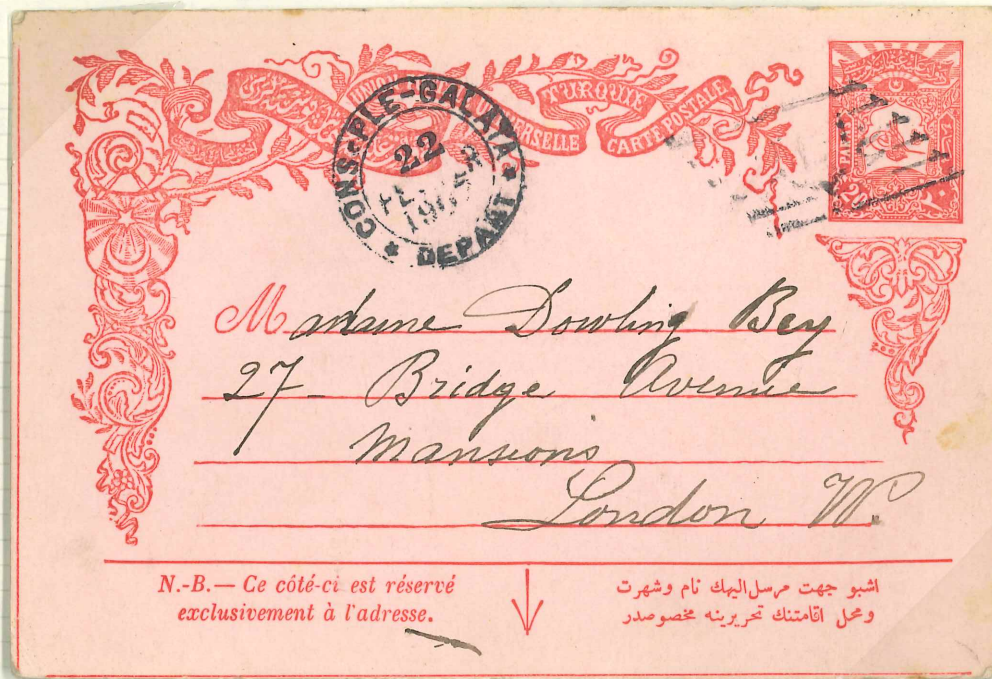 UNION POSTALE UNIVERSELLE
TURQUIE
CARTE POSTALE
CONS-PLE-GALATA
22
19
DEPART
20 PARA
Madame Dowling Bey
27 - Bridge Avenue
Mansions
London W.
N.-B. — Ce côté-ci est réservé
exclusivement à l'adresse.
اشبو جهت مرسل اليهك نام وشهرت
ومحل اقامتنك تحريرينه مخصوصدر